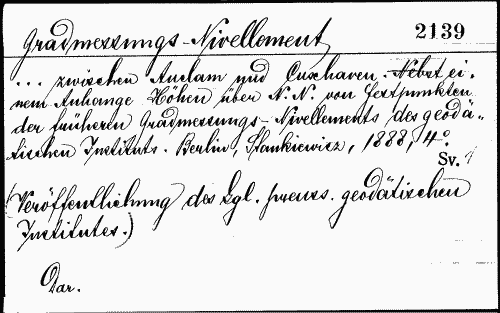 Gradmessungs-Nivellement 2139
... zwischen Anclam und Cuxhaven. Nebst ei-
nem Anhange Höhen über N.N. von Festpunkten
der früheren Gradmessungs-Nivellements des geodä-
tischen Instituts. Berlin, Stankiewicz, 1888, 4°.
Sv.
(Veröffentlichung des kgl. preuss. geodätischen
Institutes.)
Dar.